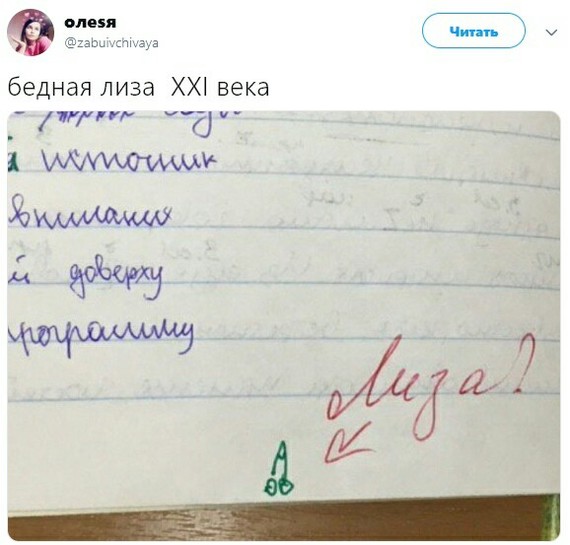 олеся
@zabuivchivaya
Читать
бедная лиза XXI века
источник
внимания
й доверху
программу
Лиза?